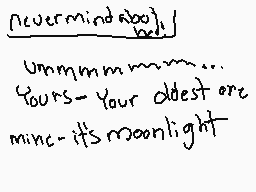 nevermind about
her.
ummmmmmm...
Yours- Your oldest are
mine- it's moonlight